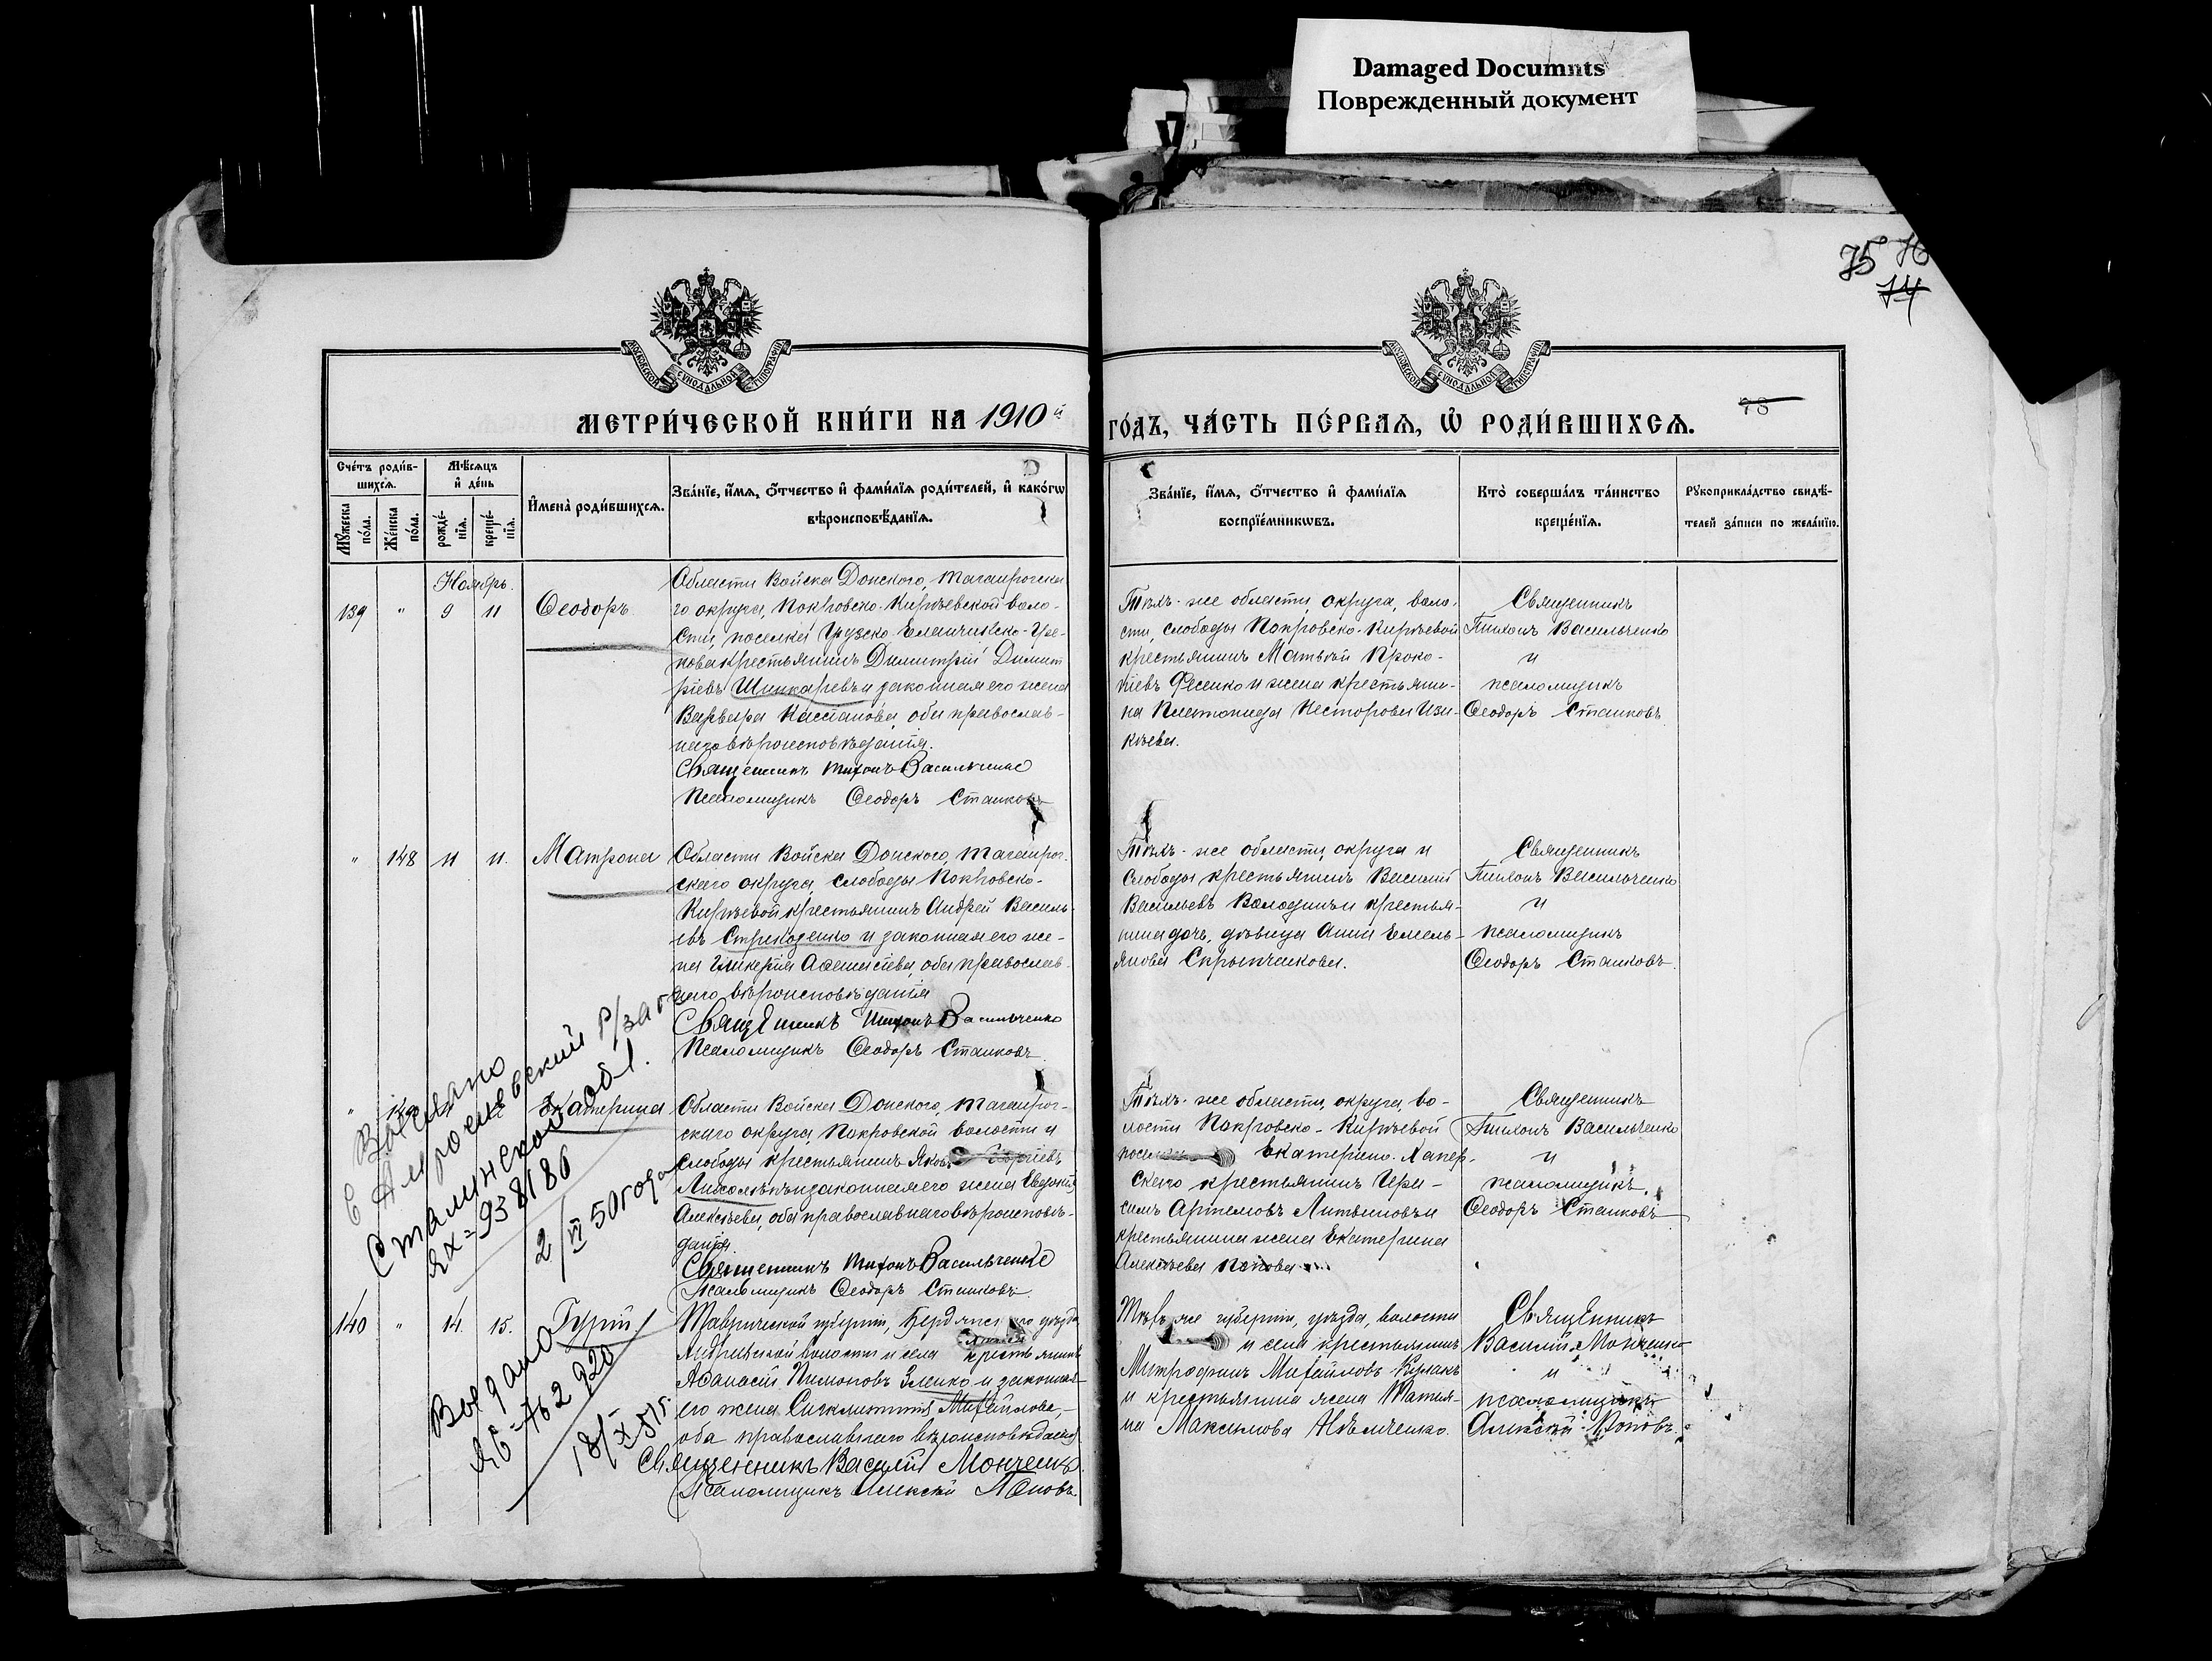 Damaged Documnts
Поврежденный документ
75 76
74
МОСКОВСКОЙ СѴНОДАЛЬНОЙ ТИПОГРАФІИ
МОСКОВСКОЙ СѴНОДАЛЬНОЙ ТИПОГРАФІИ
МЕТРИ́ЧЕСКОЙ КНИ́ГИ НА 1910й
ГО́ДЪ, ЧА́СТЬ ПЕ́РВАѦ, Ѡ҆ РОДИ́ВШИХСѦ.
78
Сче́тъ роди́в-
шихсѧ.
Мѣ́сѧцъ
и҆ де́нь
Мꙋ́жеска
по́ла.
Же́нска
по́ла.
рожде́-
нїѧ.
креще́-
нїѧ.
И҆мена̀ роди́вшихсѧ.
Зва́нїе, и҆́мѧ, ѻ҆́тчество и҆ фами́лїѧ роди́телей, и҆ како́гѡ
вѣроисповѣ́данїѧ.
Зва́нїе, и҆́мѧ, ѻ҆́тчество и҆ фами́лїѧ
воспрїе́мникѡвъ.
Кто̀ соверша́лъ та́инство
креще́нїѧ.
Рꙋкоприкла́дство свидѣ́-
телей за́писи по жела́нїю.
Ноябрь.
139 " 9 11 Ѳеодоръ
Области Войска Донского, Таганрогска
го округа, Покровско-Кирѣевской воло-
сти, поселка Грузско-Еланчикско-
крестьянинъ Димитрій Димит
ріевъ Шинкаревъ и законная его жена
Варвара Кассіанова, оба православ-
наго вѣроисповѣданія.
Священникъ Тихонъ Васильченко
Псаломщикъ Ѳеодоръ Станковъ
Тѣхъ-же области, округа, воло-
сти, слободы Покровско-Кирѣевой
крестьянинъ Матвѣй Проко-
піевъ Фесенко и жена крестьяни-
на Платонида Несторова
Священникъ
Тихонъ Васильченко
и
псаломщикъ
Ѳеодоръ Станковъ.
" 148 11 11. Матрона
Области Войска Донского, Таганрог-
скаго округа, слободы Покровско-
Кирѣевой крестьянинъ Андрей Василь-
евъ и законная его же-
на Гликерія оба православ-
наго вѣроисповѣданія
Священникъ Тихонъ Васильченко
Псаломщикъ Ѳеодоръ Станковъ.
Тѣхъ-же области, округа и
слободы крестьянинъ Василій
Васильевъ Володинъ и крестья-
нина дочь, дѣвица Анна Емель-
янова Скрыпчикова.
Священникъ
Тихонъ Васильченко
и
псаломщикъ
Ѳеодоръ Станковъ.
" Екатерина
Области Войска Донского, Таганрог-
скаго округа, Покровской волости и
слободы крестьянинъ Яковъ
и законная его жена Евдокія
Алексѣева, оба православнаго вѣроисповѣ-
данія.
Священникъ Тихонъ Васильченко
Псаломщикъ Ѳеодоръ Станковъ.
Тѣхъ-же области, округа, во-
лости Покровско-Кирѣевой
Екатерино-Хапер-
скаго крестьянинъ Гера-
симъ Артемовъ Литвиновъ и
крестьянина жена Екатерина
Алексѣева Попова
Священникъ
Тихонъ Васильченко
и
псаломщикъ
Ѳеодоръ Станковъ
Выслано
в Амросиевский р/загс
Сталинской обл.
ЯХ-938186
2/VI 50 года
140 " 14. 15. Гурій
Таврической губерніи, Бердянскаго уѣзда
Андреевской волости и села крестьянинъ
Аѳанасій Пимоновъ Зленко и законная
его жена Синклитикія Михайлова,
оба православнаго вѣроисповѣданія
Священникъ Василій Монченко
Псаломщикъ Алексій Поповъ.
Тѣхъ же губерніи, уѣзда, волости
и села крестьянинъ
Митрофанъ Михайловъ Кулакъ
и крестьянина жена Татья-
на Максимова
Священникъ
Василій Мончено
и
псаломщикъ
Алексій Поповъ.
Выдано
ЯБ-162920
18/X-51г.